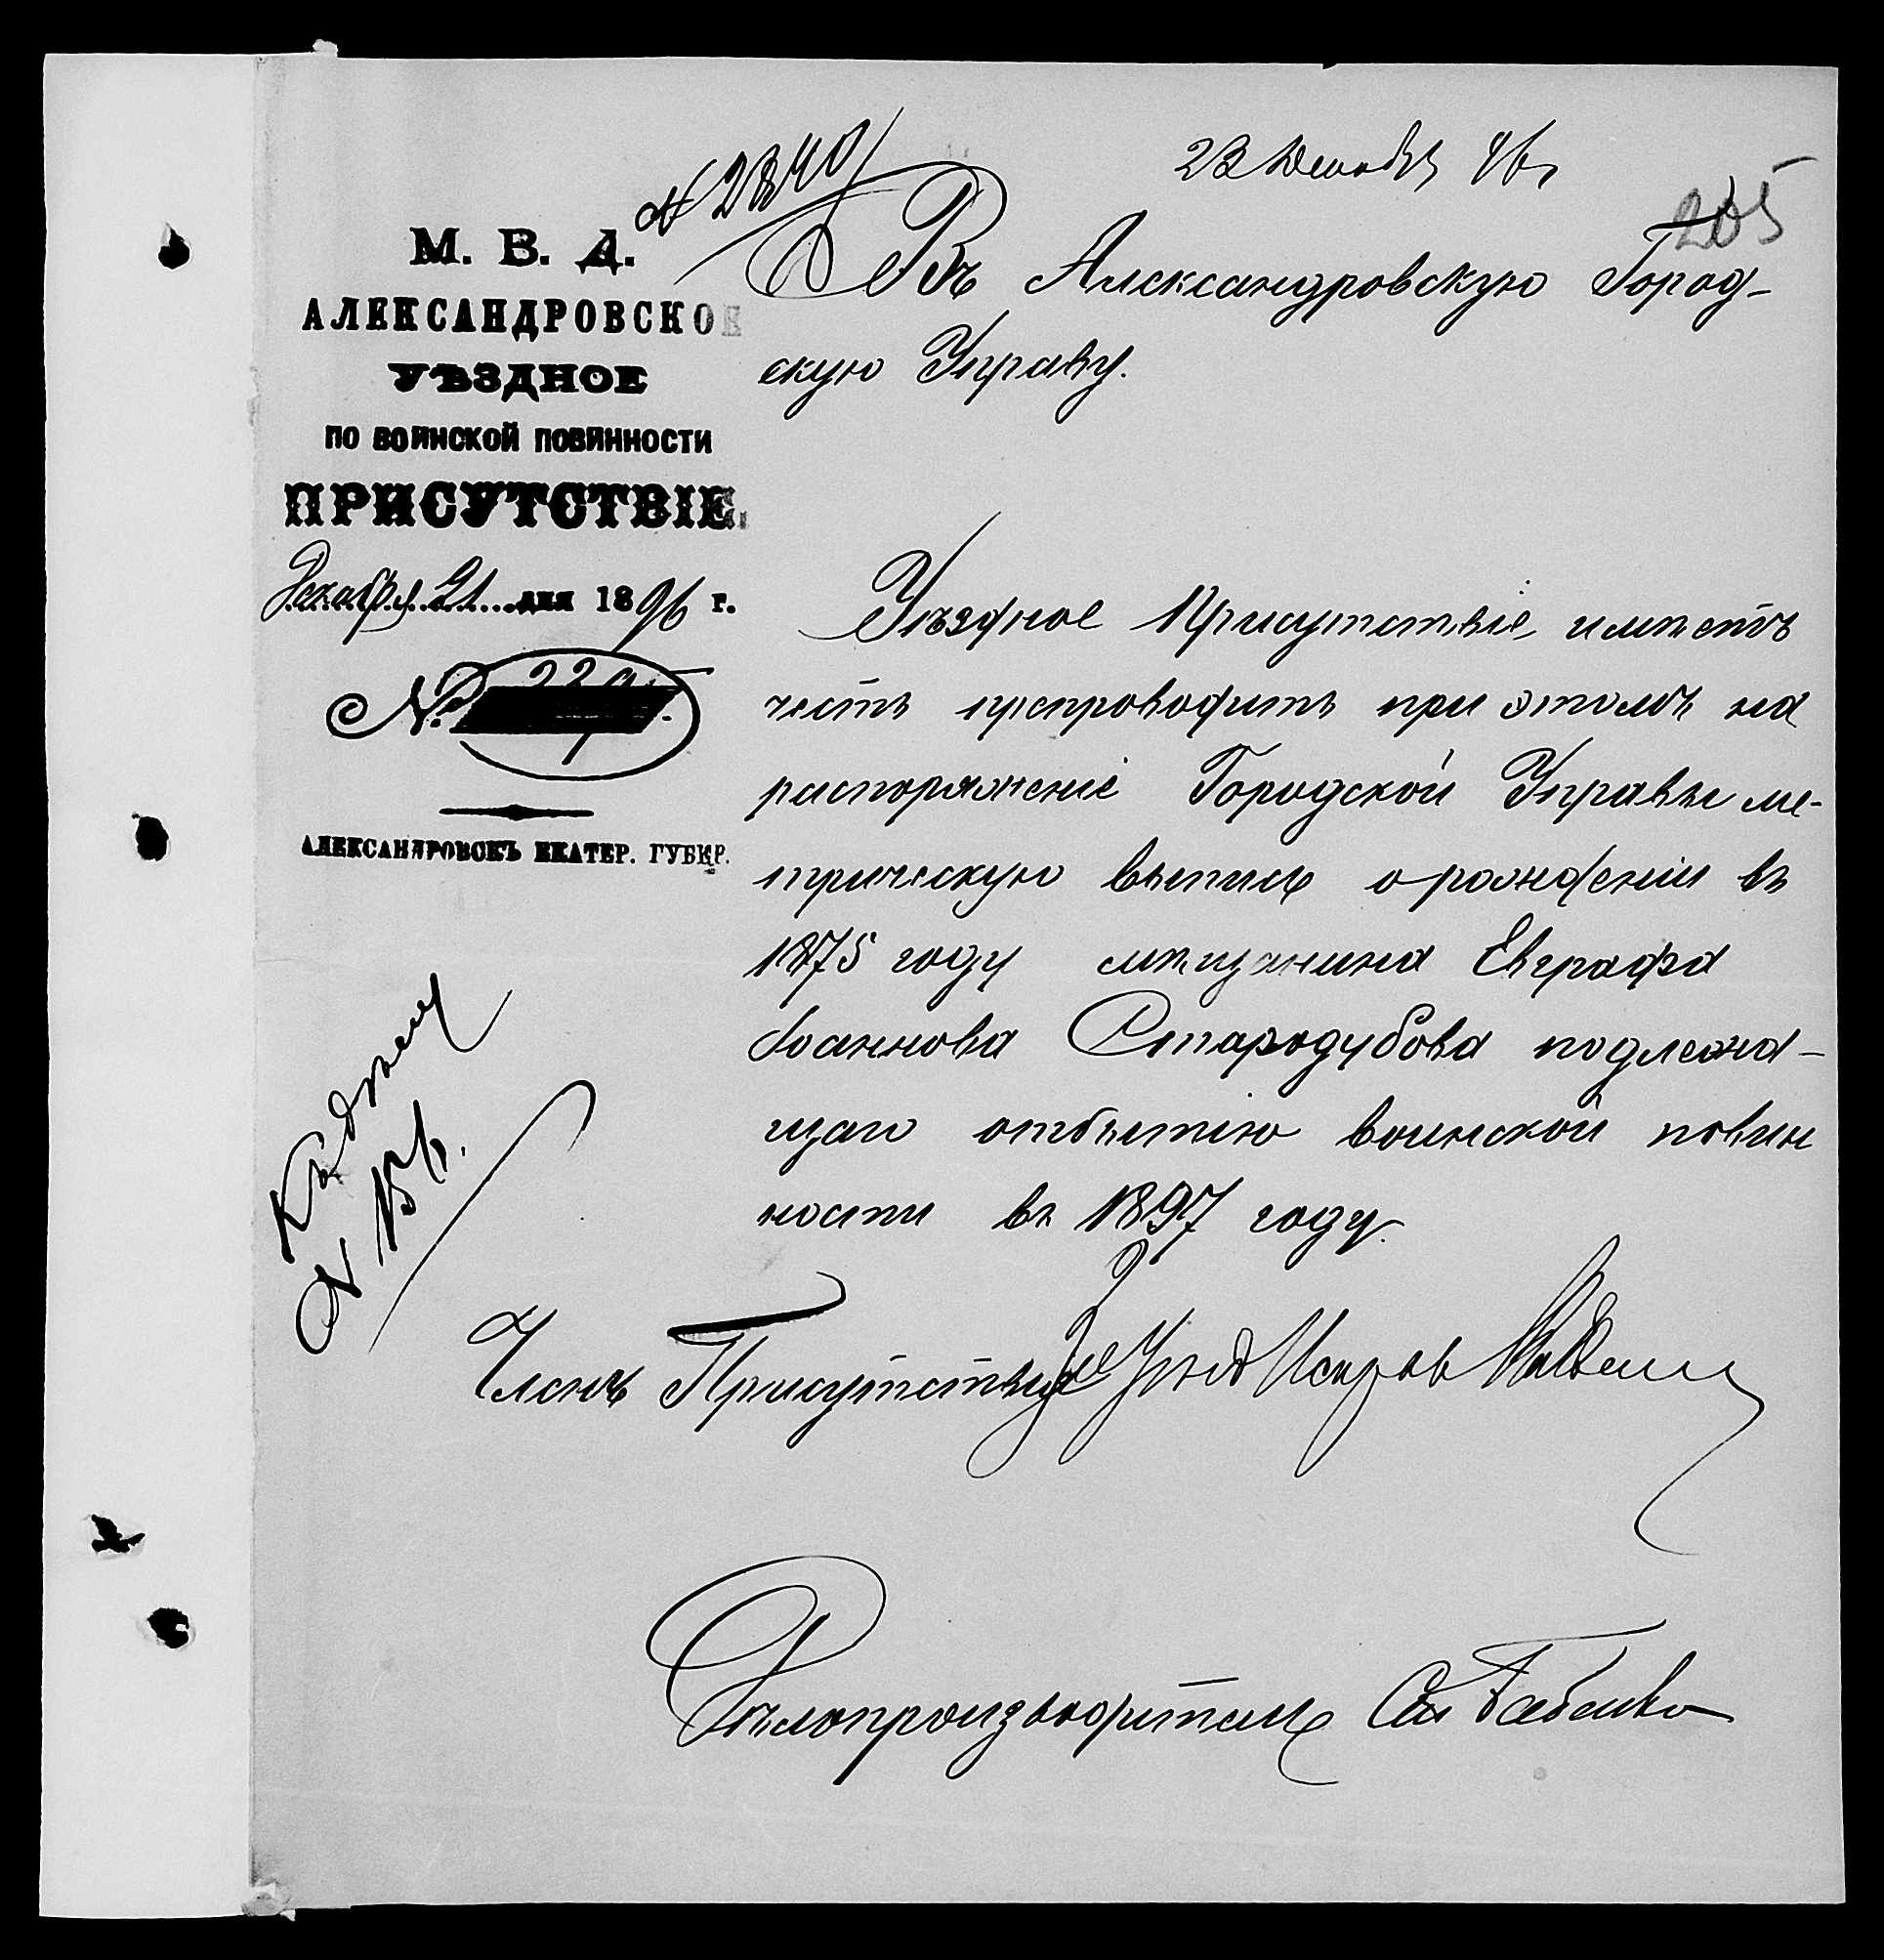 23 Декабря 96 г
№ 2840
205
М. В. Д.
АЛЕКСАНДРОВСКОЕ
УѢЗДНОЕ
ПО ВОИНСКОЙ ПОВИННОСТИ
ПРИСУТСТВІЕ.
Декабря 21 дня 1896 г.
№
АЛЕКСАНДРОВСКЪ ЕКАТЕР. ГУБЕР.
Въ Александровскую Город-
скую Управу.
Уѣздное Присутствіе, имѣетъ
честь препроводить при этомъ на
распоряженіе Городской Управы ме-
трическую выпись о рожденіи въ
1875 году мѣщанина Евграфа
Іоаннова Стародубова подлежа-
щаго отбытію воинской повин
ности въ 1897 году.
Къ дѣлу
№
Членъ Присутствія
Дѣлопроизводитель